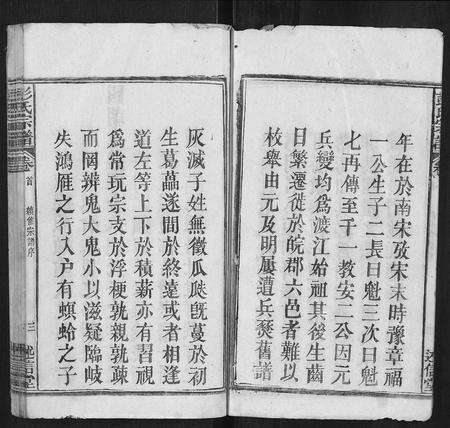 年在於南宋攷宋末時豫章福
一公生子二長日魁三次日魁
七再傳至千一教安二公因元
兵變均爲渡江始祖其後生齒
日繁遷徙於皖郡六邑者難以
枚舉由元及明屢遭兵燹舊譜
灰滅子姓無徵瓜瓞既蔓於初
生葛藟遂間於終遠或者相逢
道左等上下於積薪亦有習視
爲常玩宗支於浮梗孰親孰疎
而罔辨鬼大鬼小以滋疑臨岐
失鴻雁之行入户有螟蛉之子
彭氏宗譜
卷
首
續修宗譜序
三
述信堂